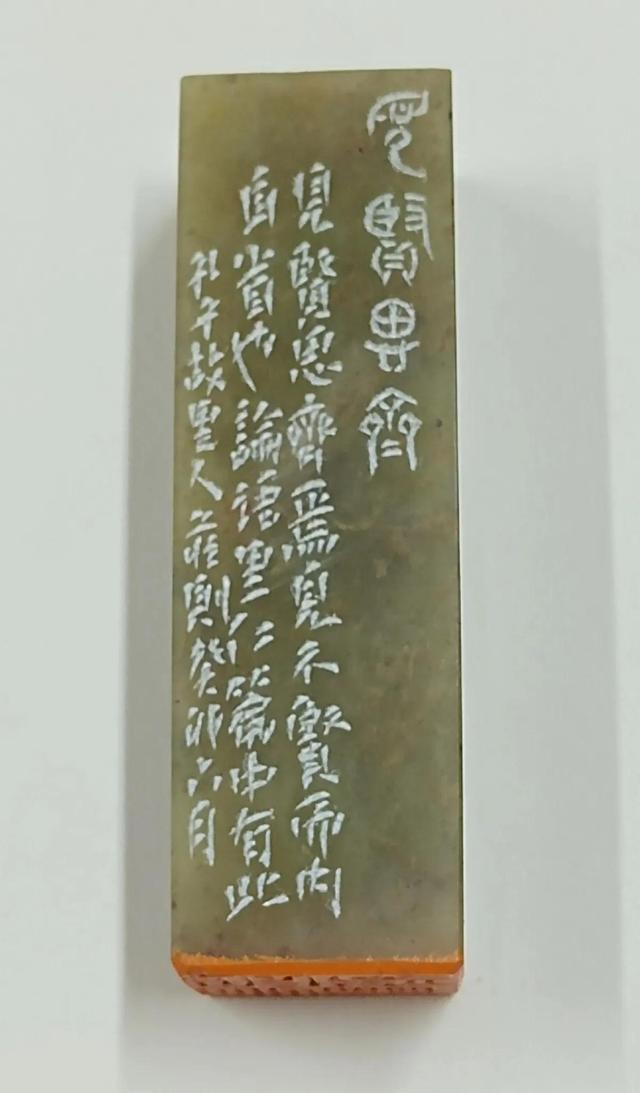 見賢思齊
見賢思齊焉見不賢而內
自省也論語里仁篇中有此
孔子故里人則癸卯六月